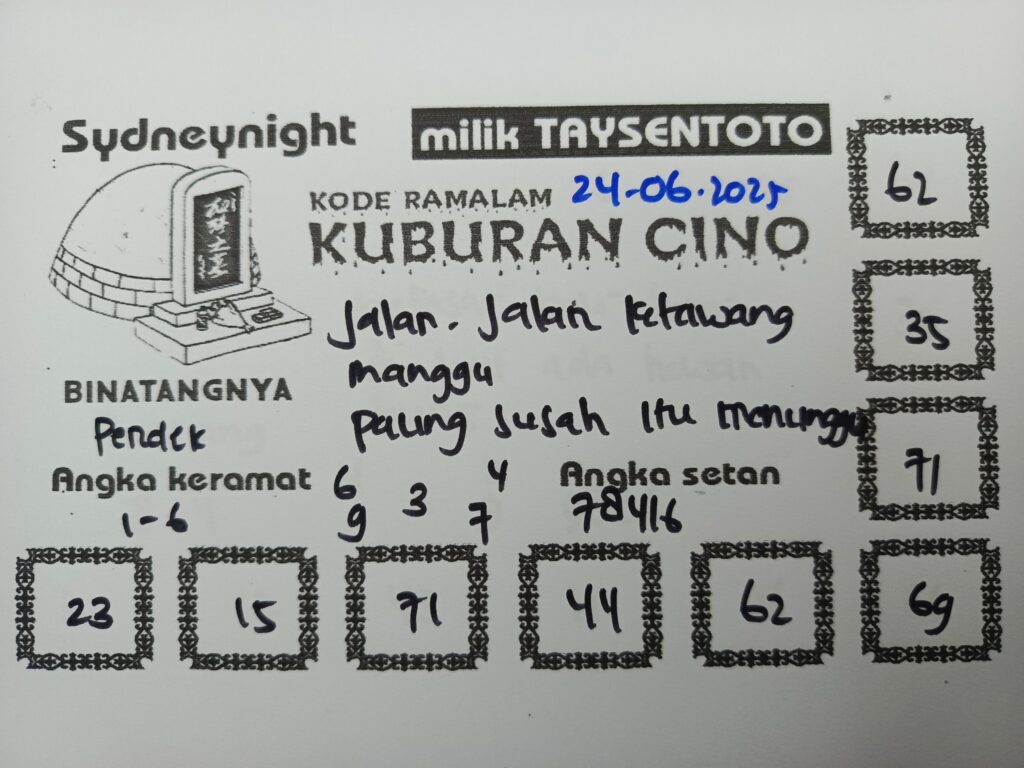 Sydneynight
milik TAYSENTOTO
KODE RAMALAM 24-06.2025
KUBURAN CINO
Jalan. Jalan ketawang
manggu
Paling susah itu menunggu
BINATANGNYA
Pendek
Angka keramat
1-6
6 3 4
9 7
Angka setan
78416
62
35
71
23 15 71 44 62 69